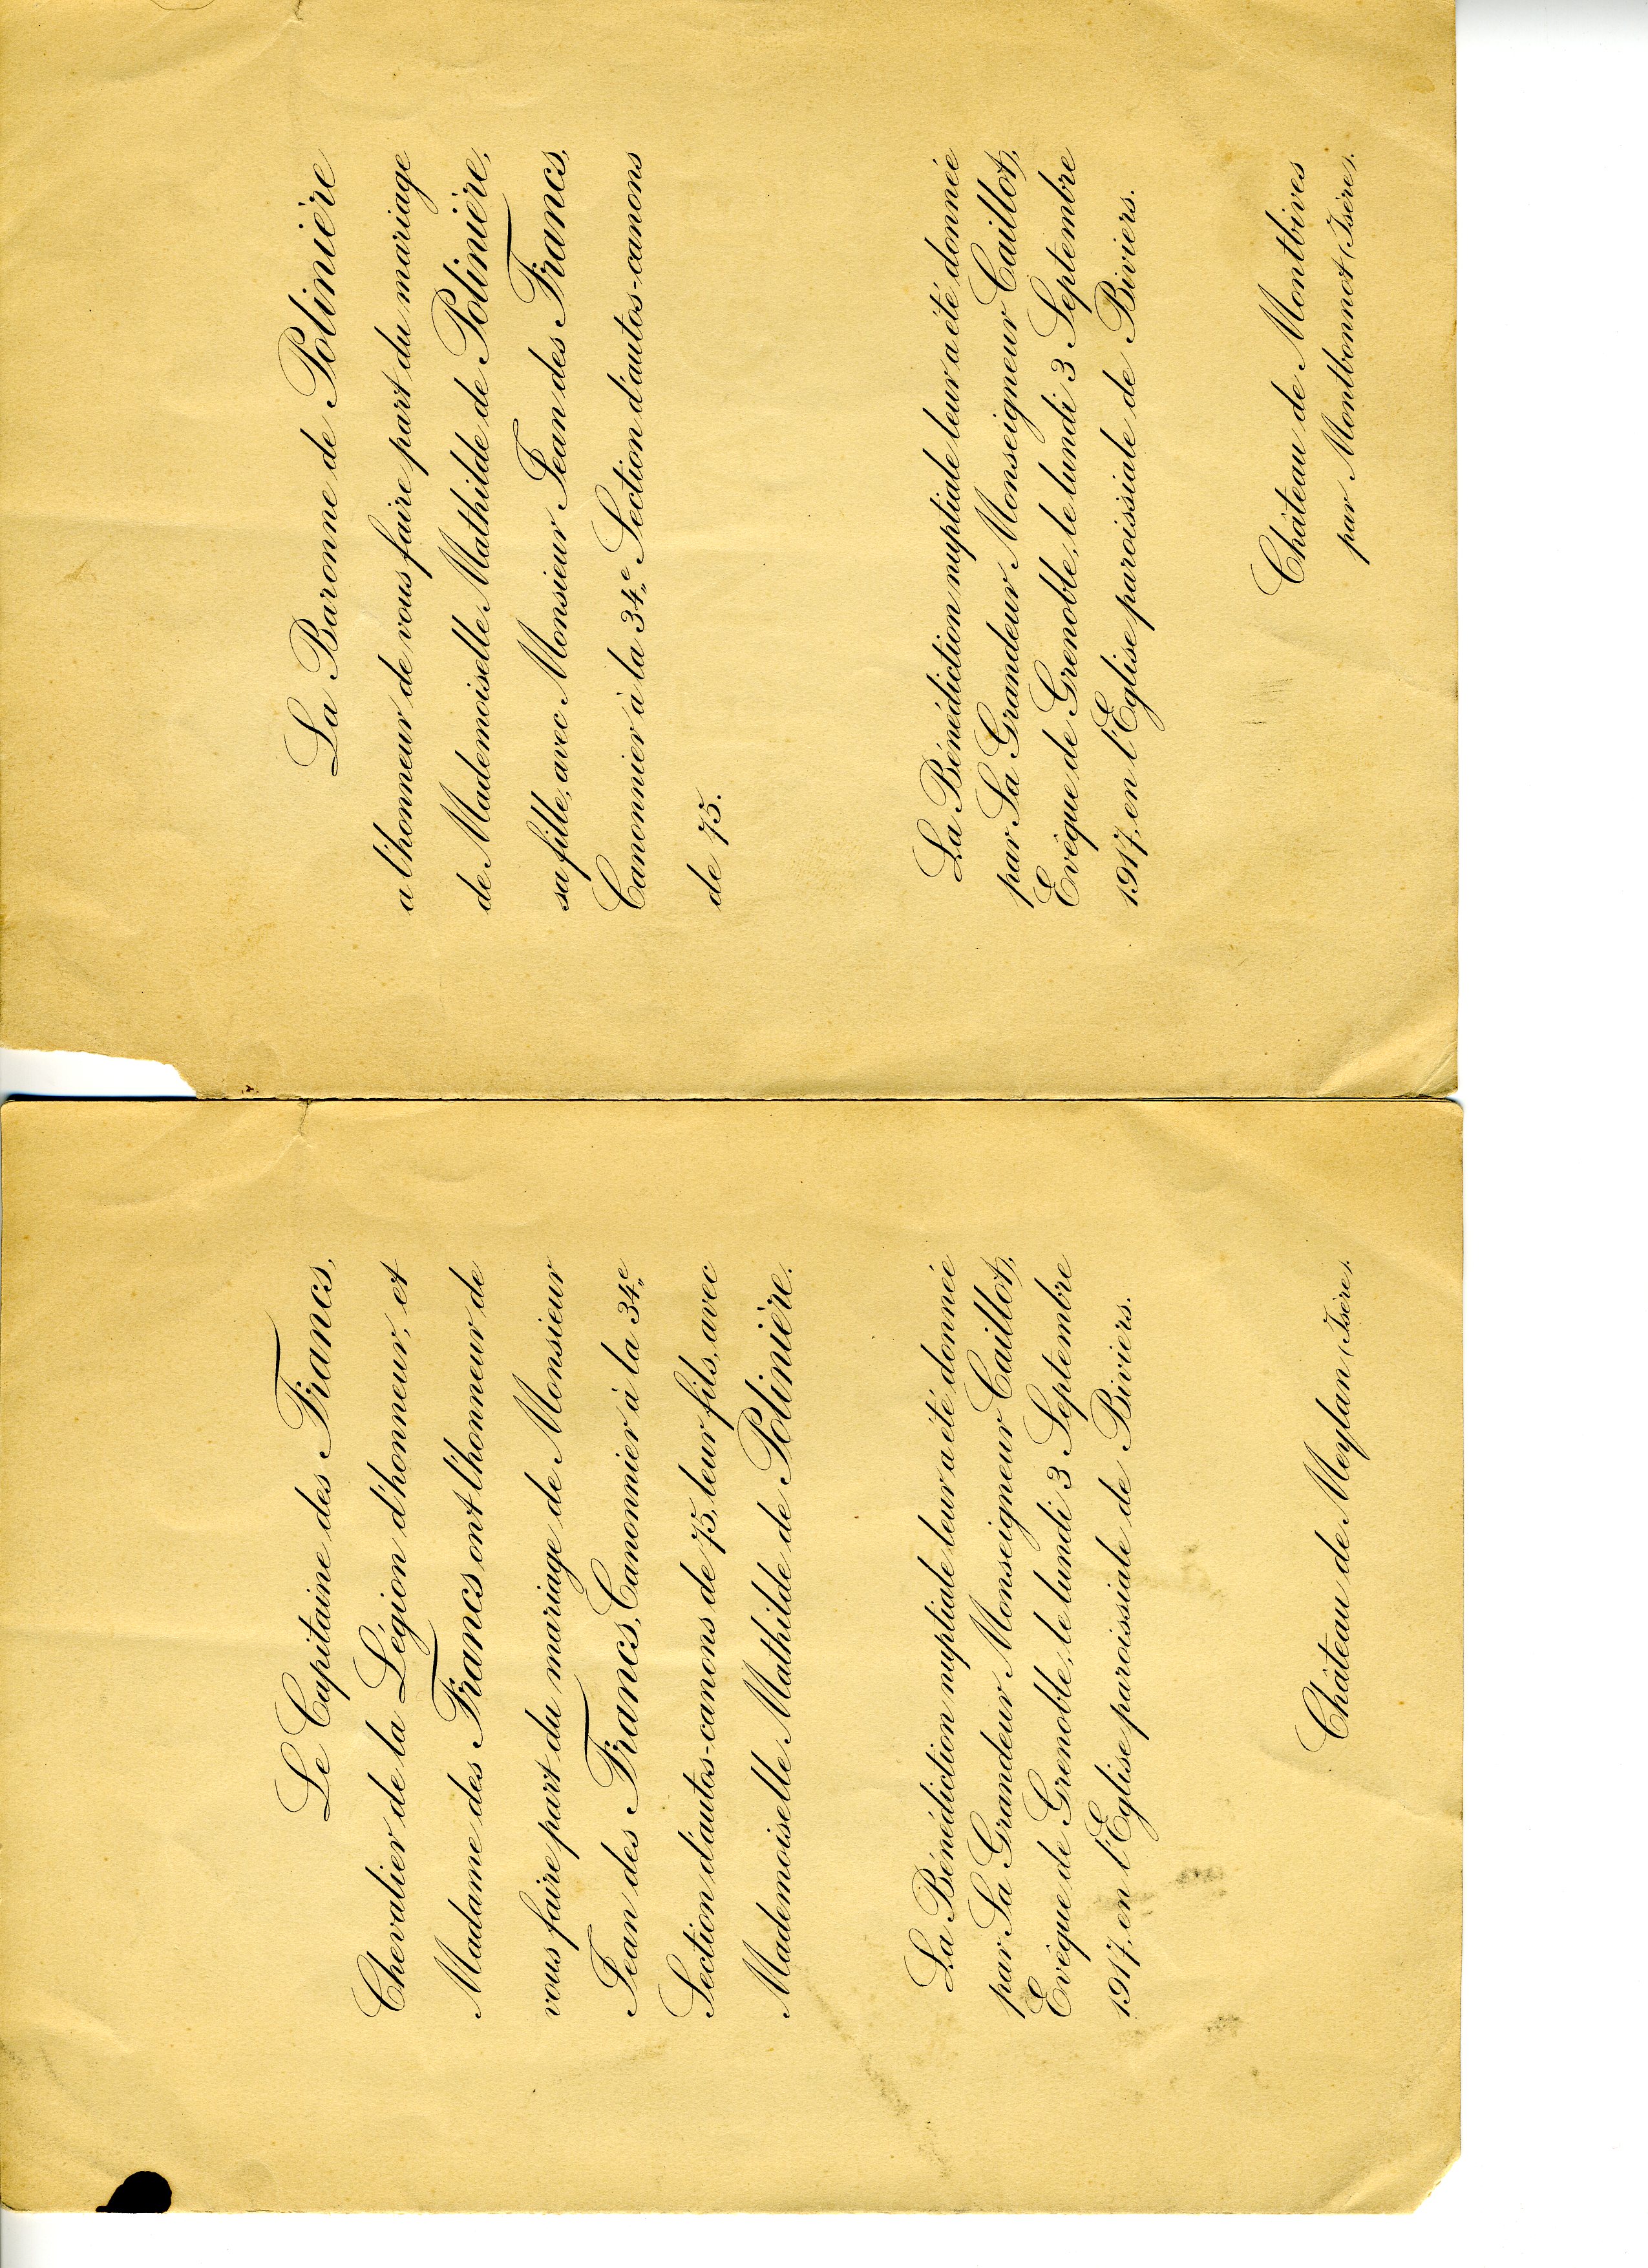 Le Capitaine des Francs,
Chevalier de la Légion d'honneur, et
Madame des Francs ont l'honneur de
vous faire part du mariage de Monsieur
Jean des Francs, Canonnier à la 34e
Section d'autos-canons de 75, leur fils, avec
Mademoiselle Mathilde de Polinière.
La Bénédiction nuptiale leur a été donnée
par Sa Grandeur Monseigneur Caillot,
Evêque de Grenoble, le lundi 3 Septembre
1917, en l'Eglise paroissiale de Biviers.
Château de Meylan (Isère).
La Baronne de Polinière
a l'honneur de vous faire part du mariage
de Mademoiselle Mathilde de Polinière,
sa fille, avec Monsieur Jean des Francs,
Canonnier à la 34e Section d'autos-canons
de 75.
La Bénédiction nuptiale leur a été donnée
par Sa Grandeur Monseigneur Caillot,
Evêque de Grenoble, le lundi 3 Septembre
1917, en l'Eglise paroissiale de Biviers.
Château de Montbives
par Montbonnot (Isère).